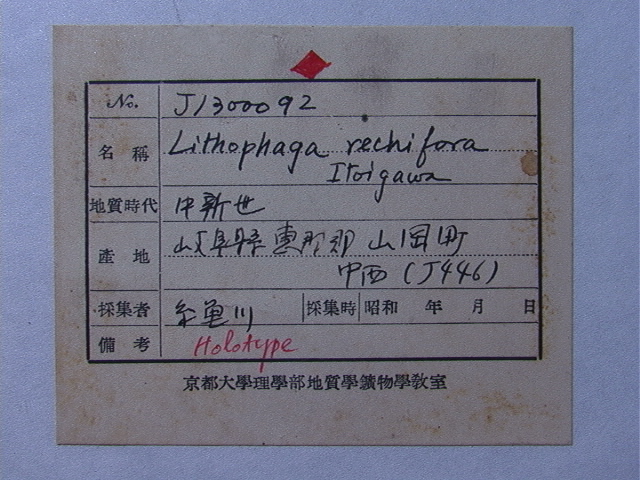 No. J1300092
名稱 Lithophaga rechifora
Itoigawa
地質時代 中新世
產地 岐阜縣 恵那郡 山岡町
中西 (J446)
採集者 糸魚川 採集時 昭和 年 月 日
備考 Holotype
京都大學理學部地質學鑛物學教室